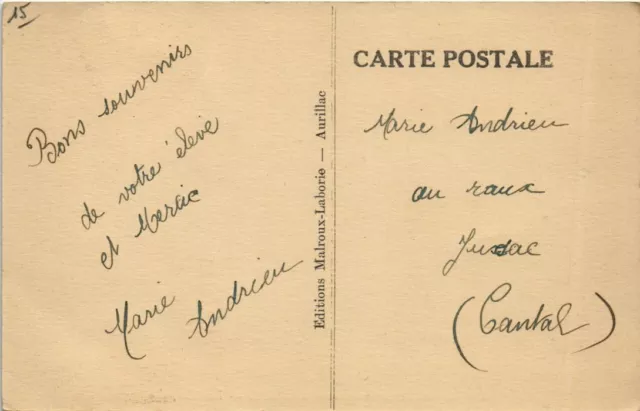 15
Bons souvenirs
de votre élève
et Merci
Marie Andrieu
Editions Malroux-Laborie — Aurillac
CARTE POSTALE
Marie Andrieu
au raux
Jussac
(Cantal)